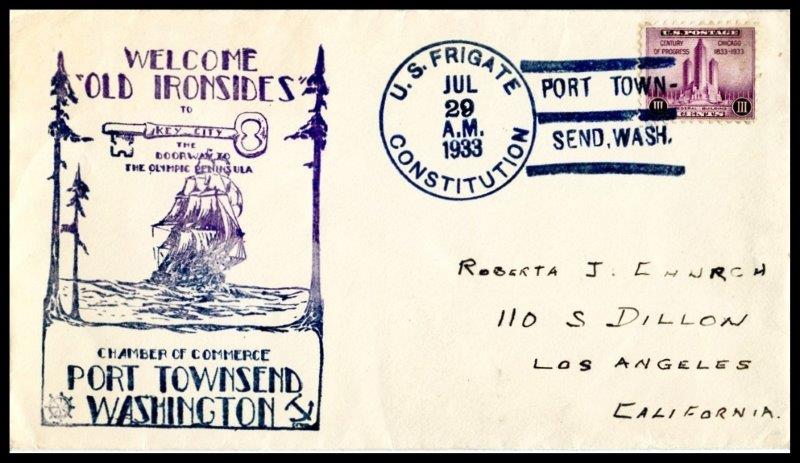 WELCOME
"OLD IRONSIDES"
TO
KEY CITY
THE
DOORWAY TO
THE OLYMPIC PENINSULA
CHAMBER OF COMMERCE
PORT TOWNSEND
WASHINGTON
U.S. FRIGATE
JUL
29
A.M.
1933
CONSTITUTION
PORT TOWN-
SEND, WASH.
U.S. POSTAGE
CENTURY OF PROGRESS
CHICAGO 1833-1933
FEDERAL BUILDING
III CENTS III
ROBERTA J. CHURCH
110 S DILLON
LOS ANGELES
CALIFORNIA.